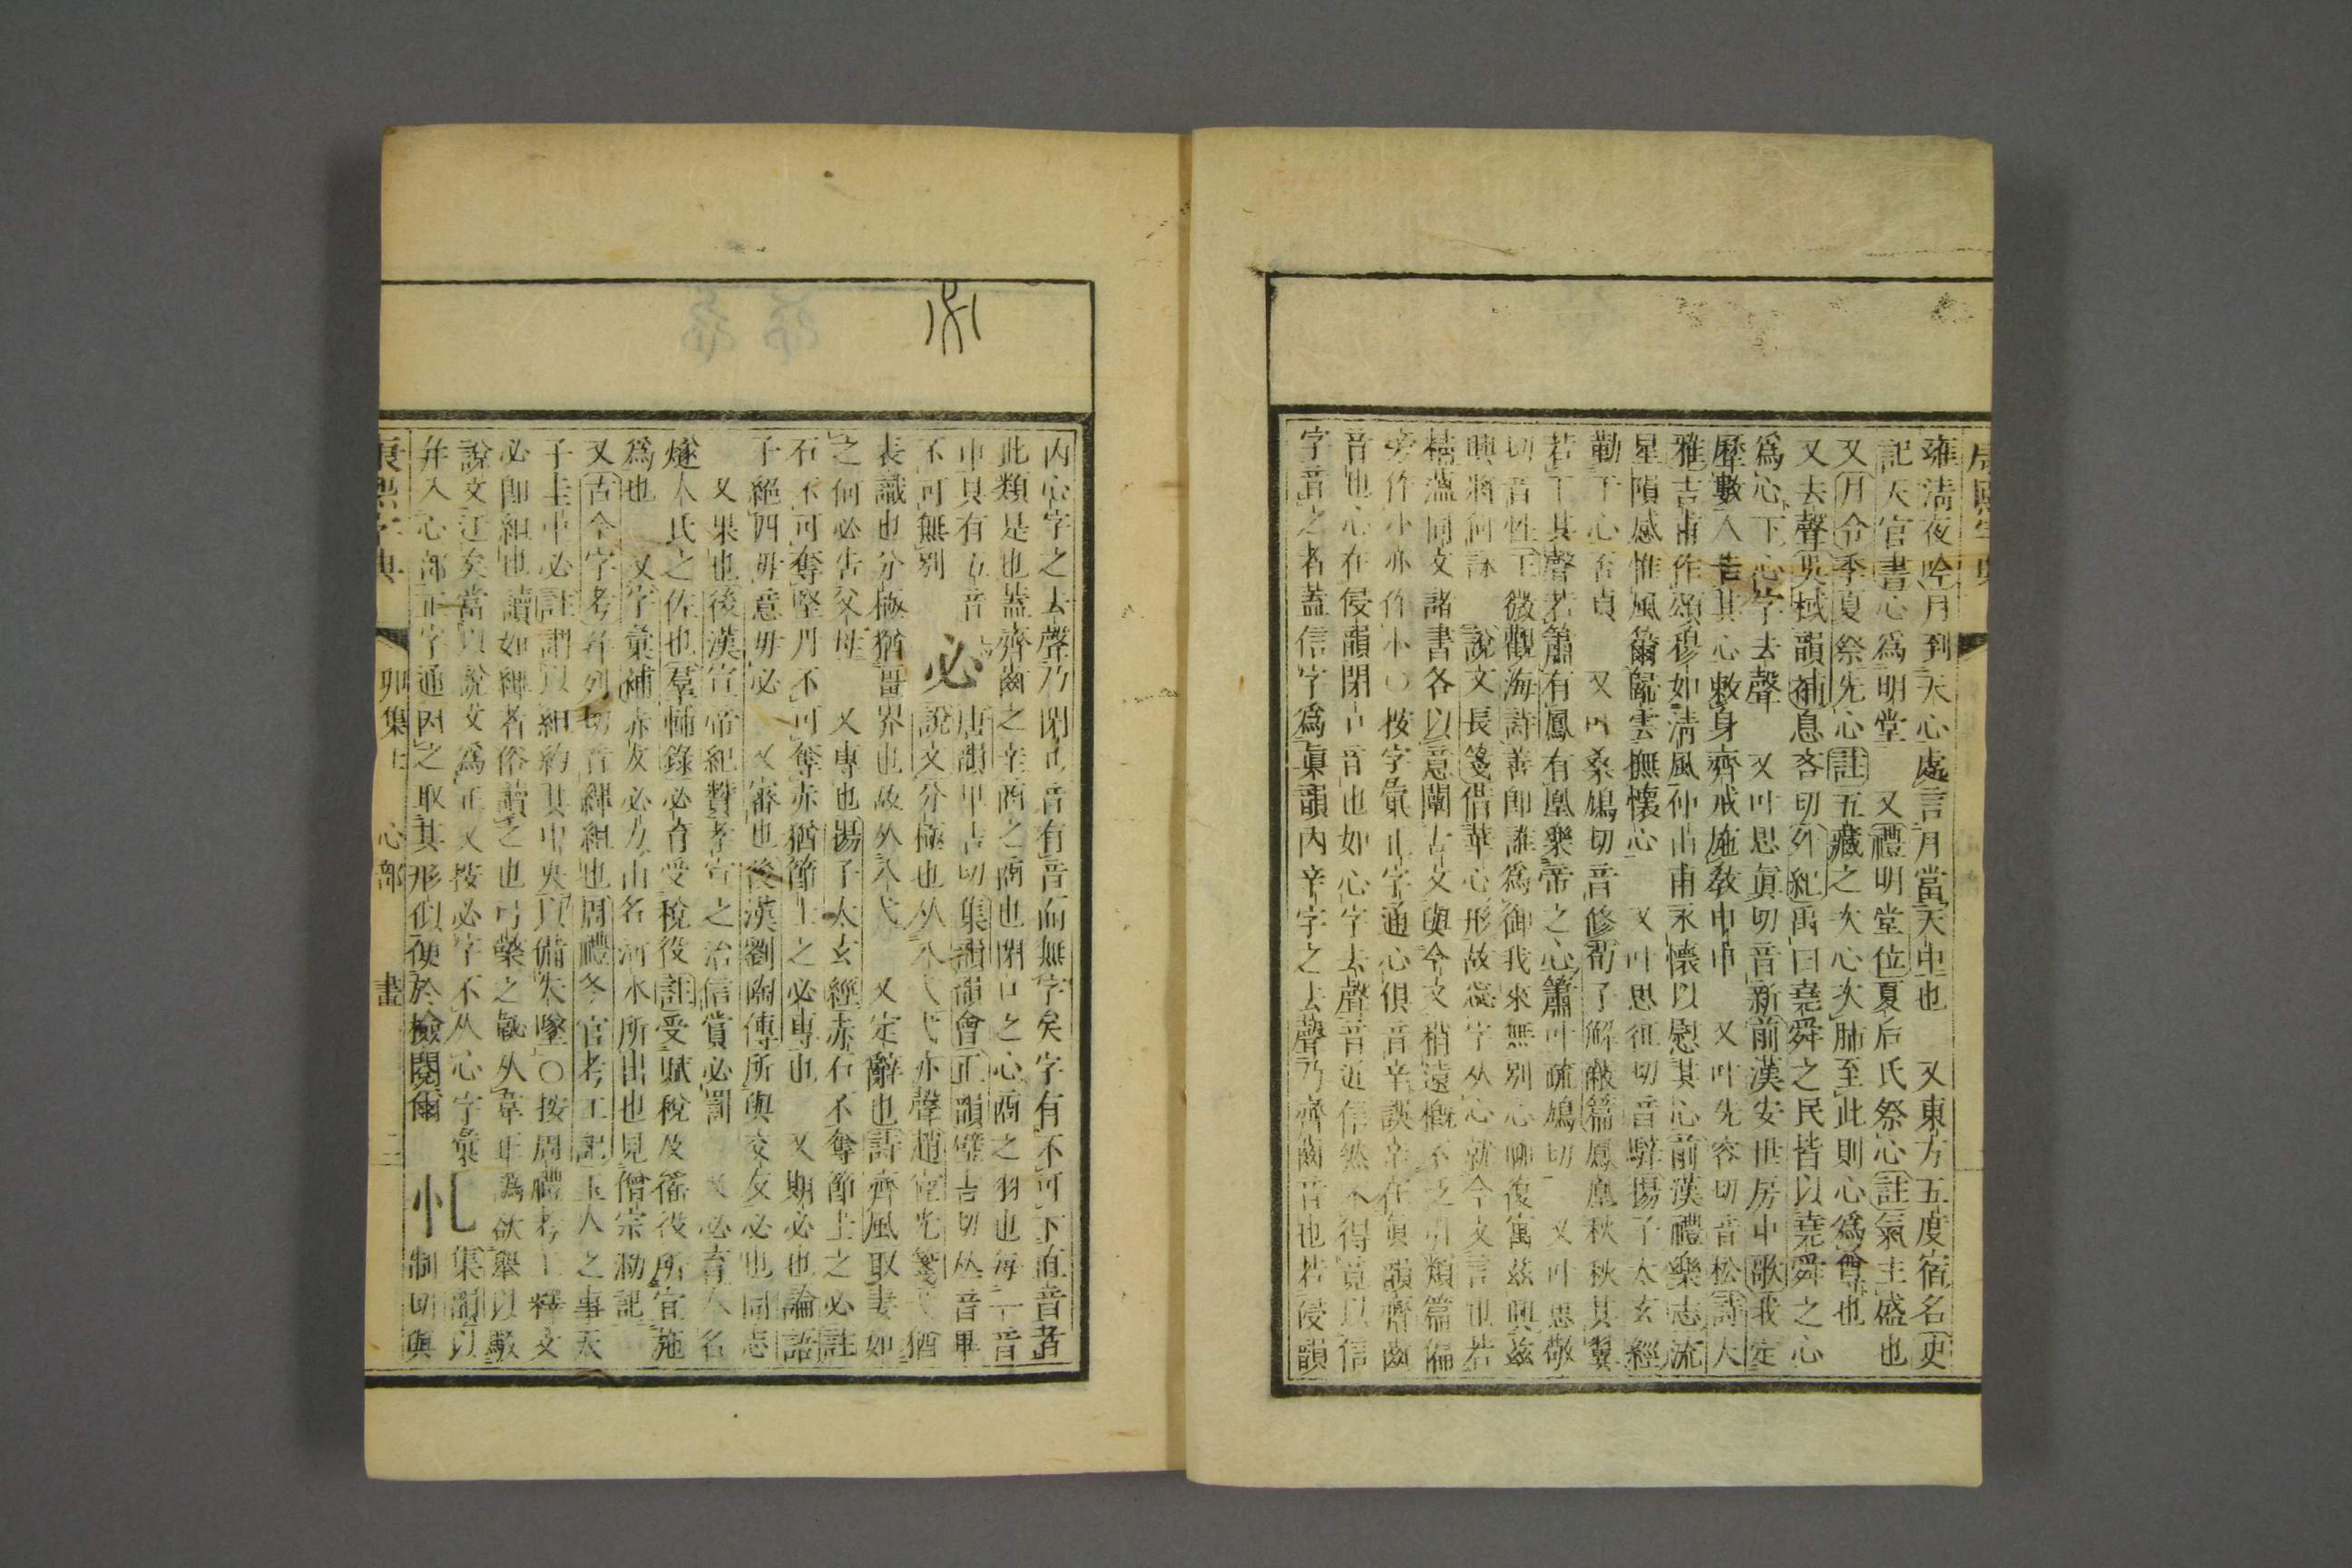 雍淸夜吟月到天心處言月當天中也　又東方五度宿名史
記天官書心爲明堂　又禮明堂位夏后氏祭心註氣主盛也
又月令季夏祭先心註五藏之次心次肺至此則心爲尊也
又去聲吳棫韻補息吝切外紀禹曰堯舜之民皆以堯舜之心
爲心下心字去聲　又叶思眞切音新前漢安世房中歌我定
歷數人告其心敕身齊戒施敎申申　又叶先容切音松詩大
雅吉甫作頌穆如淸風仲山甫永懷以慰其心前漢禮樂志流
星隕感惟風籋歸雲撫懷心　又叶思徂切音騂揚子太玄經
勤于心否貞　又叶桑鳩切音修荀子解蔽篇鳳凰秋秋其翼
若干其聲若簫有鳳有凰樂帝之心簫叶疏鳩切　又叶思敬
切音性王微觀海詩善卽誰爲御我來無別心聊復寓茲興茲
興將何詠　說文長箋借華心形故惢字从心就今文言也若
精蘊同文諸書各以意闡古文與今文稍遠槪不泛引類篇偏
旁作忄亦作㣺○按字彙正字通心俱音辛誤辛在眞韻齊齒
音也心在侵韻閉口音也如心字去聲音近信然不得竟以信
字音之者蓋信字爲眞韻內辛字之去聲乃齊齒音也若侵韻
內心字之去聲乃閉口音有音而無字矣字有不可下直音者
此類是也蓋齊齒之辛商之商也閉口之心商之羽也每一音
中具有五音
必
唐韻𤰞吉切集韻韻會正韻壁吉切𠀤音畢
不可無別　說文分極也从八弋弋亦聲趙宧光箋弋猶
表識也分極猶畺界也故从八弋　又定辭也詩齊風取妻如
之何必告父母　又專也揚子太玄經赤石不奪節士之必註
石不可奪堅丹不可奪赤猶節士之必專也　又期必也論語
子絕四毋意毋必　又審也後漢劉陶傳所與交友必也同志
又果也後漢宣帝紀贊孝宣之治信賞必罰　又必育人名
燧人氏之佐也羣輔錄必育受稅役註受賦稅及徭役所宜施
爲也　又字彙補赤友必力山名河水所出也見僧宗泐記
又古今字考幷列切音縪組也周禮冬官考工記玉人之事天
子圭中必註謂以組約其中央以備失墜○按周禮考工釋文
必卽組也讀如縪者俗讀之也弓檠之䪐从韋正爲欲舉以馭
說文迂矣當以說文爲正又按必字不从心字彙
幷入心部正字通因之取其形似便於檢閱爾
忆
集韻以
制切與
康熙字典　卯集上　心部　畫　二